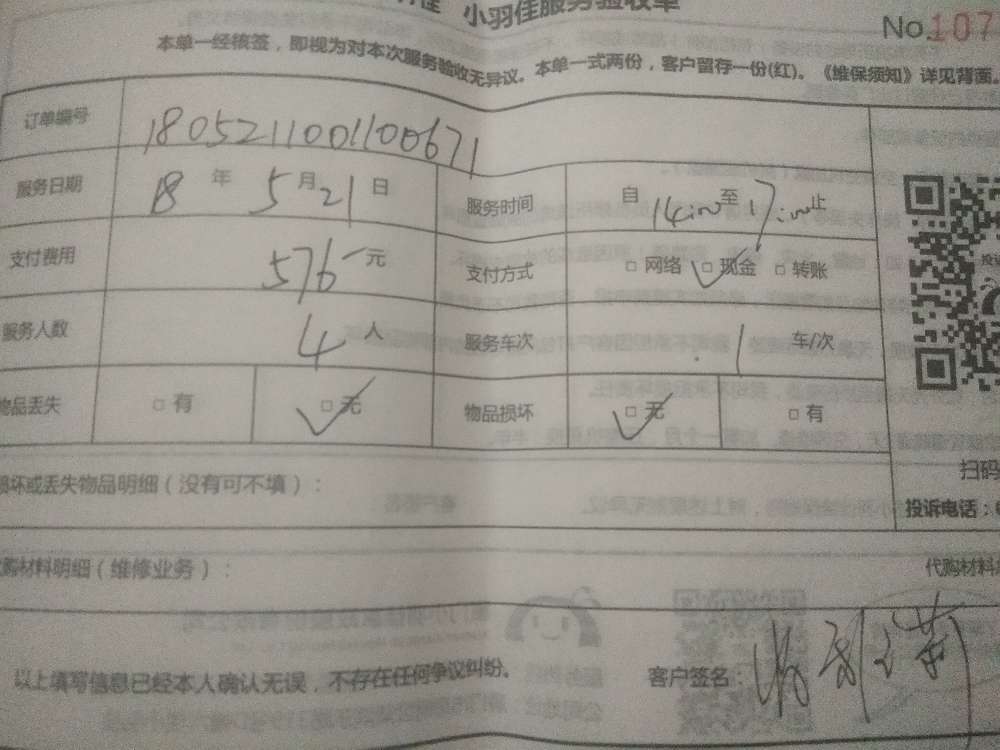 小羽佳服务验收单
No.107
本单一经核签，即视为对本次服务验收无异议。本单一式两份，客户留存一份(红)。《维保须知》详见背面。
订单编号 1805211001100671
服务日期 18 年 5 月 21 日 服务时间 自 14:00 至 17:00 止
支付费用 576 元 支付方式 □ 网络 □ 现金 □ 转账
服务人数 4 人 服务车次 1 车/次
物品丢失 □ 有 □ 无 物品损坏 □ 无 □ 有
损坏或丢失物品明细（没有可不填）：
扫码
投诉电话：
代购材料明细（维修业务）：
代购材料
以上填写信息已经本人确认无误，不存在任何争议纠纷。
客户签名：